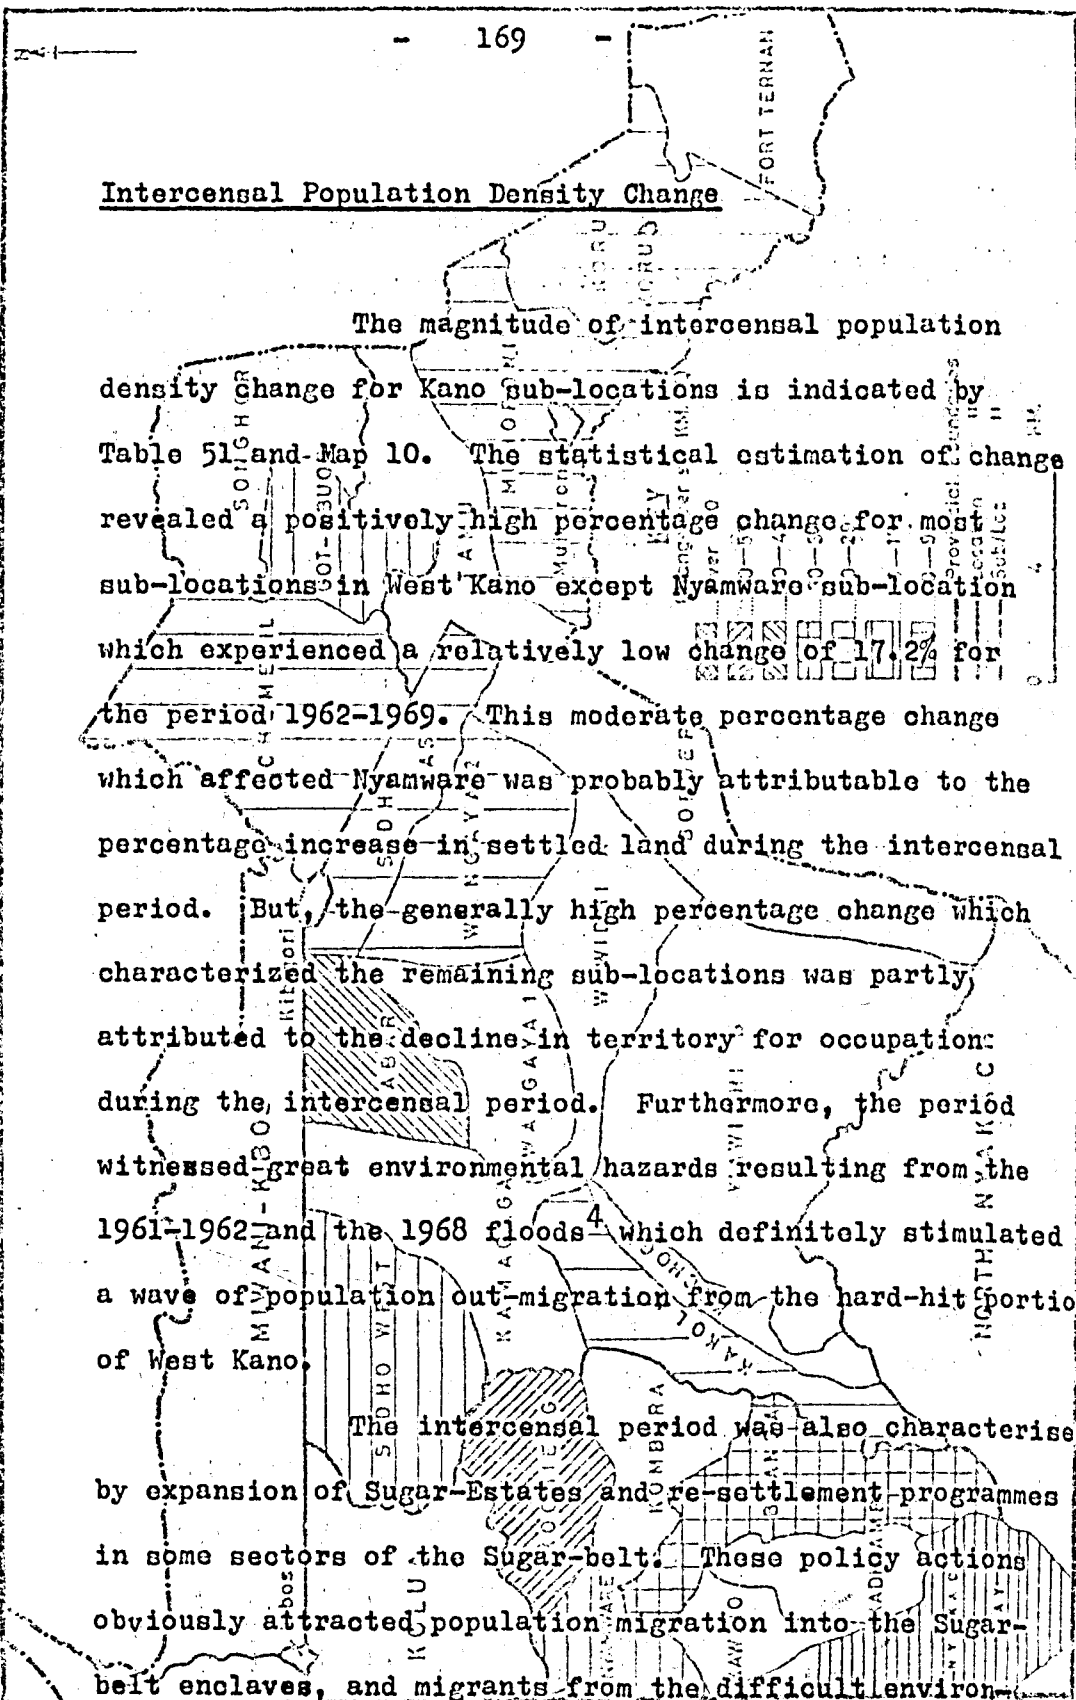 - 169 -
Intercensal Population Density Change
The magnitude of intercensal population
density change for Kano sub-locations is indicated by
Table 51 and Map 10. The statistical estimation of change
revealed a positively high percentage change for most
sub-locations in West Kano except Nyamware sub-location
which experienced a relatively low change of 17.2% for
the period 1962-1969. This moderate percentage change
which affected Nyamware was probably attributable to the
percentage increase in settled land during the intercensal
period. But, the generally high percentage change which
characterized the remaining sub-locations was partly
attributed to the decline in territory for occupation
during the intercensal period. Furthermore, the period
witnessed great environmental hazards resulting from the
1961-1962 and the 1968 floods 4 which definitely stimulated
a wave of population out-migration from the hard-hit portio
of West Kano.
The intercensal period was also characterise
by expansion of Sugar-Estates and re-settlement programmes
in some sectors of the Sugar-belt. These policy actions
obviously attracted population migration into the Sugar-
belt enclaves, and migrants from the difficult environ-
FORT TERNAN
KORU
SONGHOR
GOT-ABUO
Muhoroni
CHEMELIL
Kibigori
WAGAYA 1
KAMAGAGA
MIWANI-KIBO
SIDHO WEST
KAKOLA
KOMBRA
NORTH NYAKAC